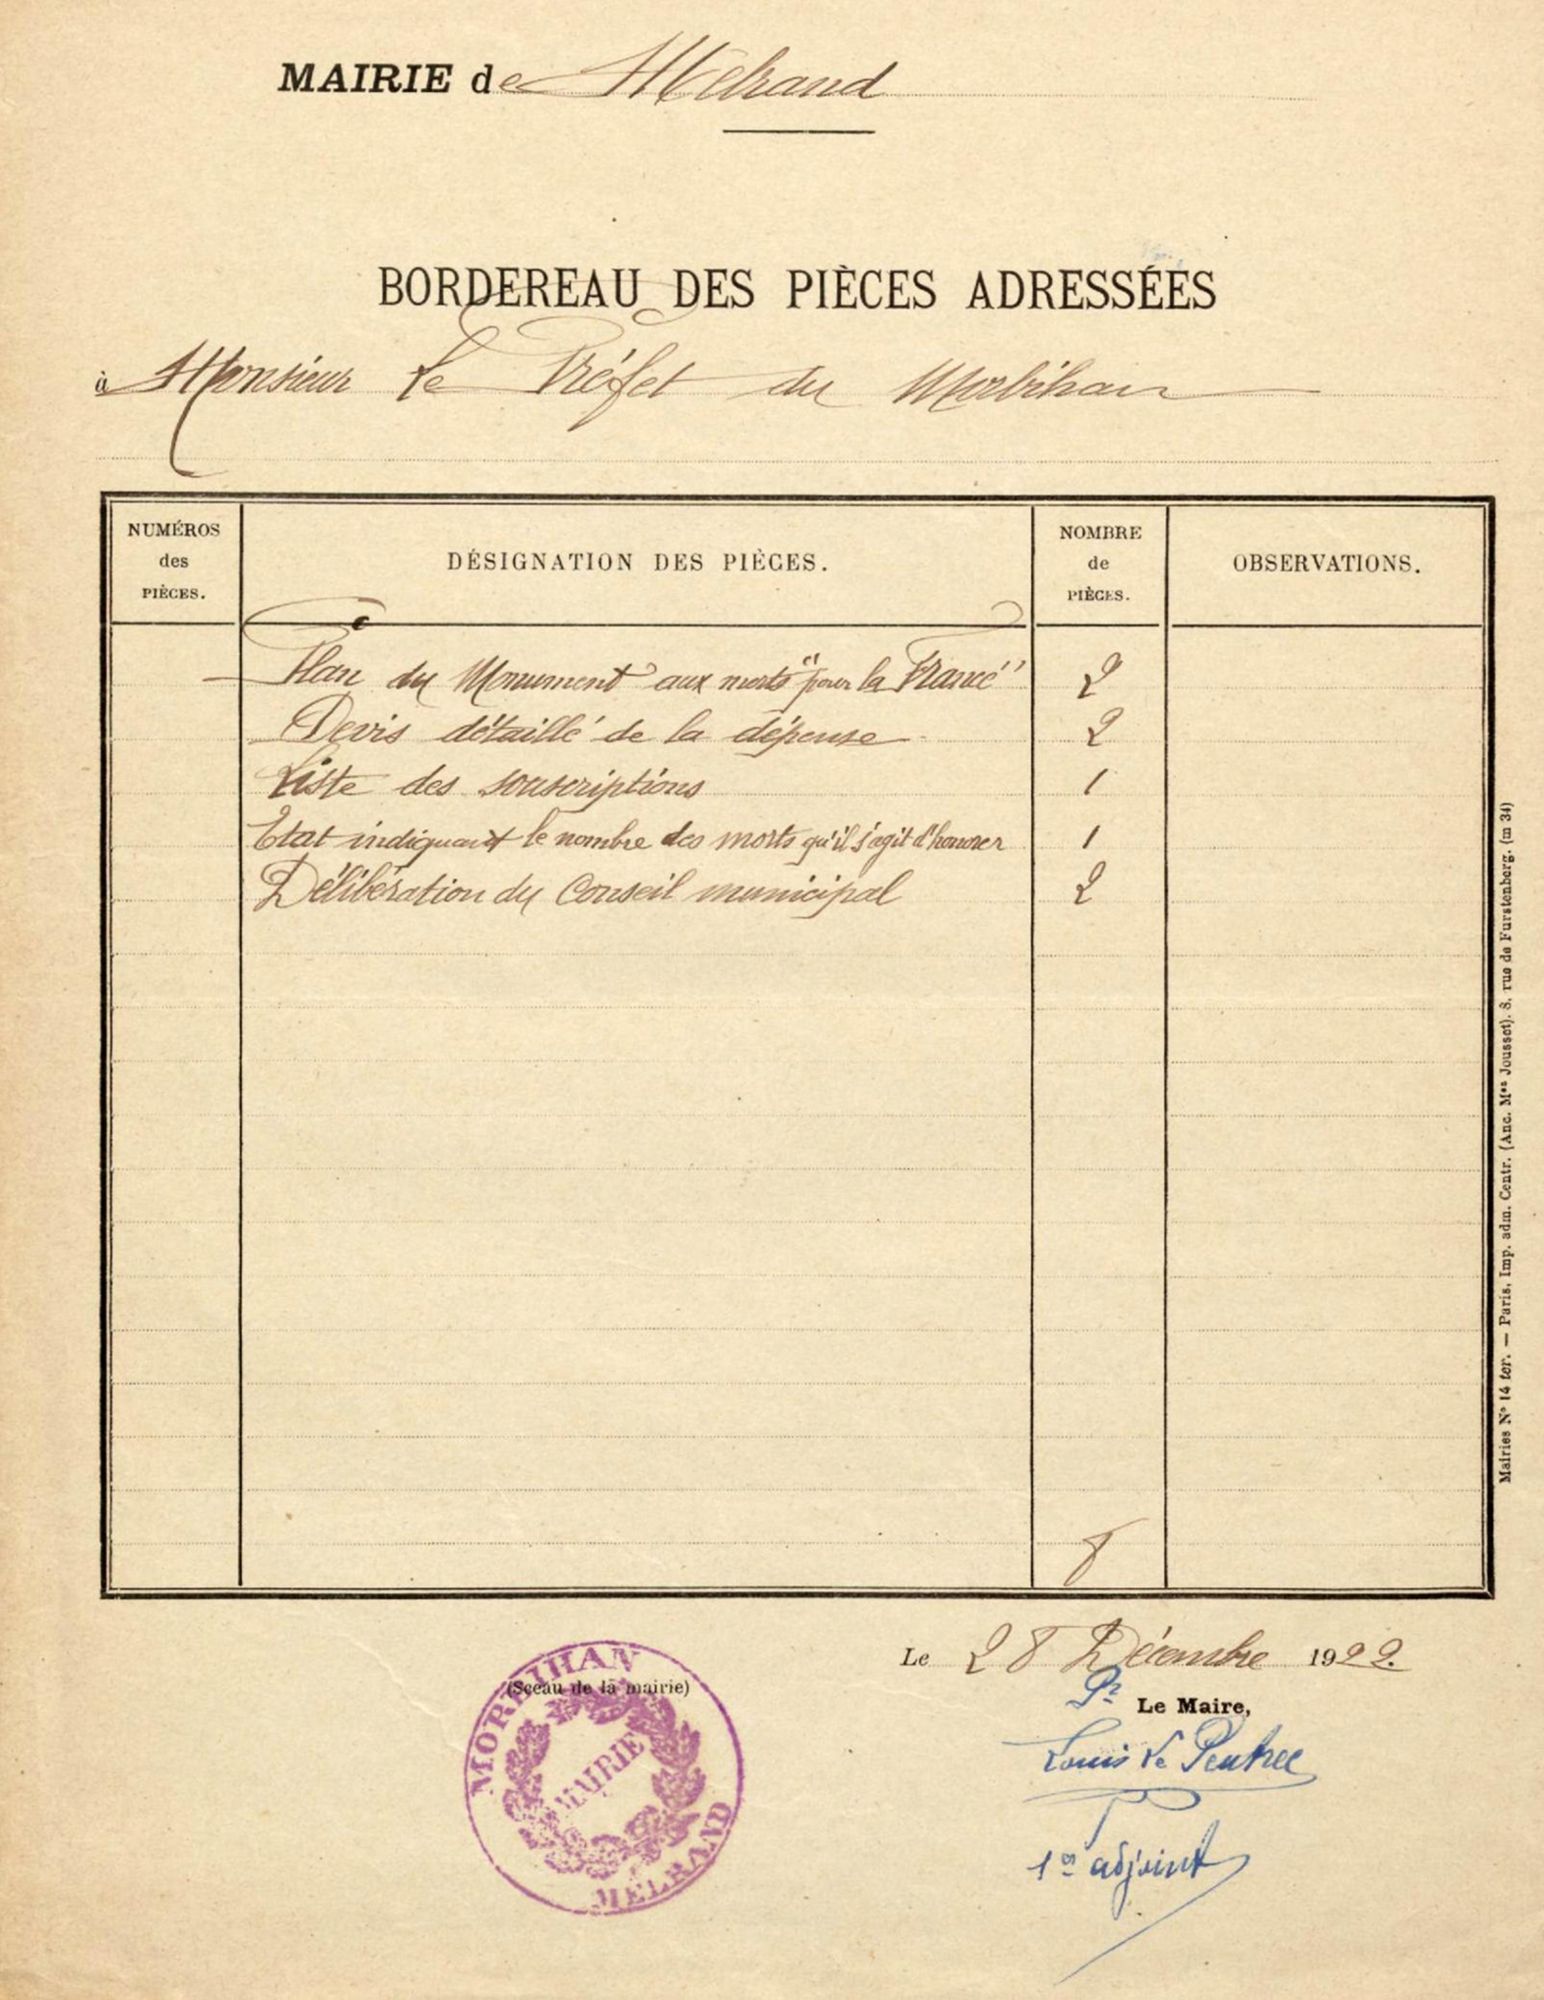 MAIRIE de Melrand
BORDEREAU DES PIÈCES ADRESSÉES
à Monsieur Le Préfet du Morbihan
NUMÉROS
des
PIÈCES.
DÉSIGNATION DES PIÈCES.
NOMBRE
de
PIÈCES.
OBSERVATIONS.
Plan du Monument aux morts "pour la France" 2
Devis détaillé de la dépense 2
Liste des souscriptions 1
Etat indiquant le nombre des morts qu'il s'agit d'honorer 1
Délibération du Conseil municipal 2
8
Mairies N° 14 ter. — Paris, Imp. adm. Centr. (Anc. Mon Jousset). 8, rue de Furstenberg. (m 34)
Le 28 Décembre 1922.
(Sceau de la mairie)
MORBIHAN
MAIRIE
MELRAND
Pr Le Maire,
Louis Le
1er adjoint